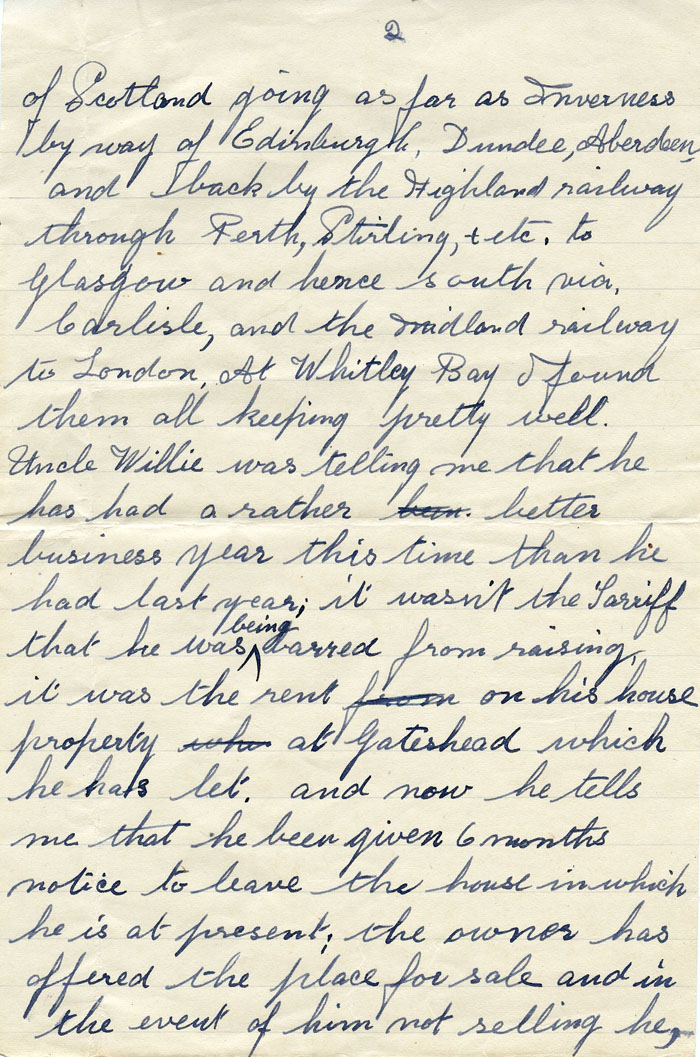 2
of Scotland going as far as Inverness
by way of Edinburgh, Dundee, Aberdeen,
and back by the Highland railway
through Perth, Stirling, + etc. to
Glasgow and hence south via,
Carlisle, and the midland railway
to London. At Whitley Bay I found
them all keeping pretty well.
Uncle Willie was telling me that he
has had a rather been. better
business year this time than he
had last year; it wasn't the Tarriff
that he was being barred from raising,
it was the rent from on his house
property who at Gateshead which
he has let. and now he tells
me that he been given 6 months
notice to leave the house in which
he is at present; the owner has
offered the place for sale and in
the event of him not selling he,